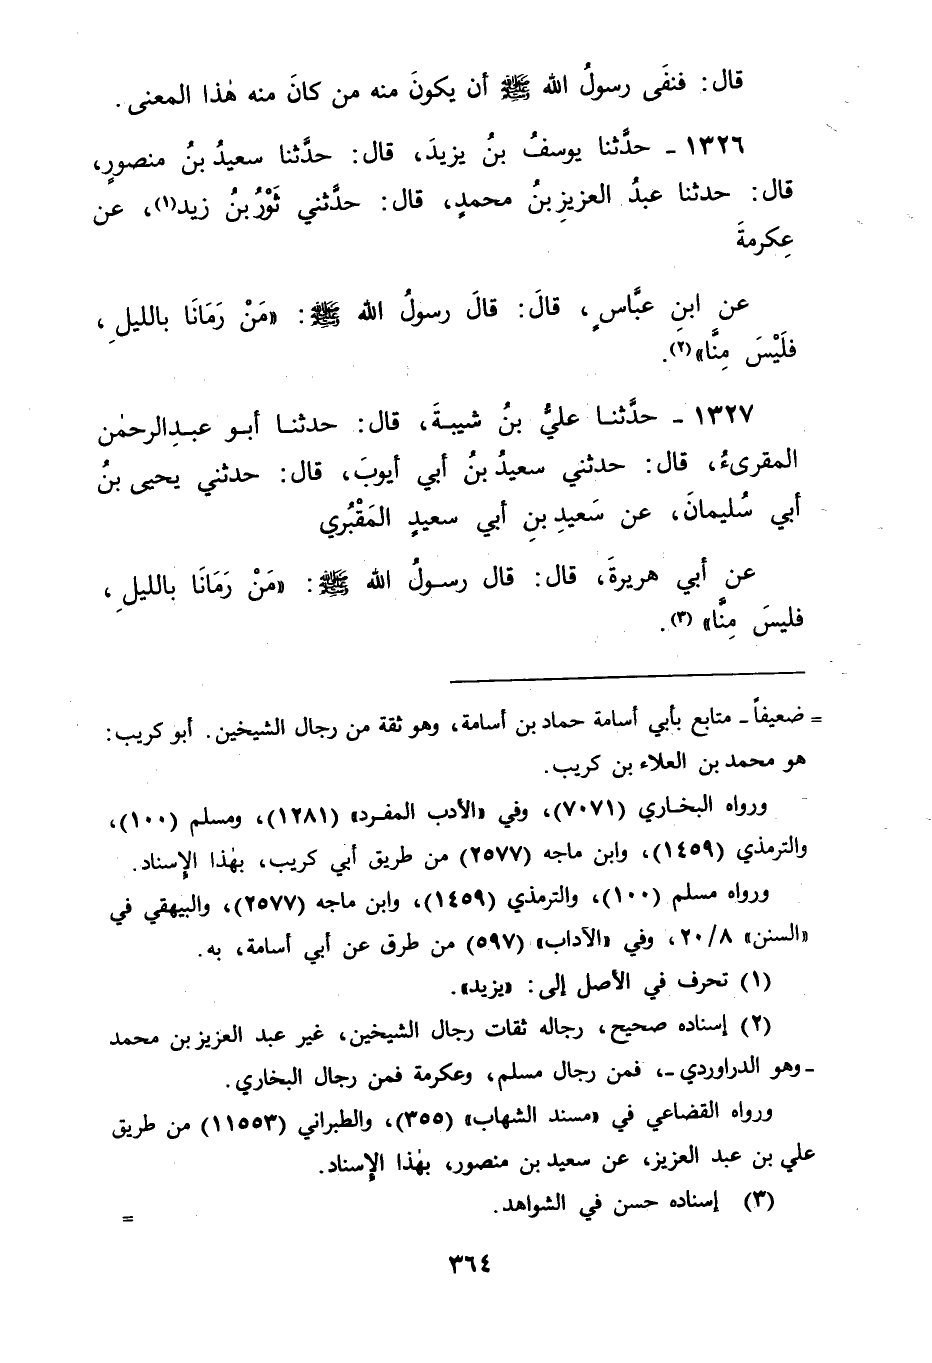 قال: فنفَى رسولُ الله ﷺ أن يكونَ منه من كانَ منه هٰذا المعنى.
١٣٢٦ ـ حدَّثنا يوسفُ بنُ يزيدَ، قال: حدَّثنا سعيدُ بنُ منصورٍ،
قال: حدثنا عبدُ العزيزِ بنُ محمدٍ، قال: حدَّثني ثَوْرُ بنُ زيد(١)، عن
عِكرمةَ
عن ابنِ عبَّاسٍ، قالَ: قالَ رسولُ الله ﷺ: «مَنْ رَمَانَا بالليلِ،
فلَيْسَ مِنَّا»(٢).
١٣٢٧ ـ حدَّثنا عليُّ بنُ شيبةَ، قال: حدثنا أبو عبدِالرحمٰن
المقرىءُ، قال: حدثني سعيدُ بنُ أبي أيوبَ، قال: حدثني يحيى بنُ
أبي سُليمانَ، عن سَعيدِ بنِ أبي سعيدٍ المَقْبُري
عن أبي هريرةَ، قال: قال رسولُ الله ﷺ: «مَنْ رَمَانَا بالليلِ،
فليسَ مِنَّا» (٣).
= ضعيفاً ـ متابع بأبي أسامة حماد بن أسامة، وهو ثقة من رجال الشيخين. أبو كريب:
هو محمد بن العلاء بن كريب.
ورواه البخاري (٧٠٧١)، وفي «الأدب المفرد» (١٢٨١)، ومسلم (١٠٠)،
والترمذي (١٤٥٩)، وابن ماجه (٢٥٧٧) من طريق أبي كريب، بهٰذا الإِسناد.
ورواه مسلم (١٠٠)، والترمذي (١٤٥٩)، وابن ماجه (٢٥٧٧)، والبيهقي في
«السنن» ٢٠/٨، وفي «الآداب» (٥٩٧) من طرق عن أبي أسامة، به.
(١) تحرف في الأصل إلى: «يزيد».
(٢) إسناده صحيح، رجاله ثقات رجال الشيخين، غير عبد العزيز بن محمد
ـ وهو الدراوردي ـ، فمن رجال مسلم، وعكرمة فمن رجال البخاري.
ورواه القضاعي في «مسند الشهاب» (٣٥٥)، والطبراني (١١٥٥٣) من طريق
علي بن عبد العزيز، عن سعيد بن منصور، بهٰذا الإِسناد.
(٣) إسناده حسن في الشواهد. =
٣٦٤